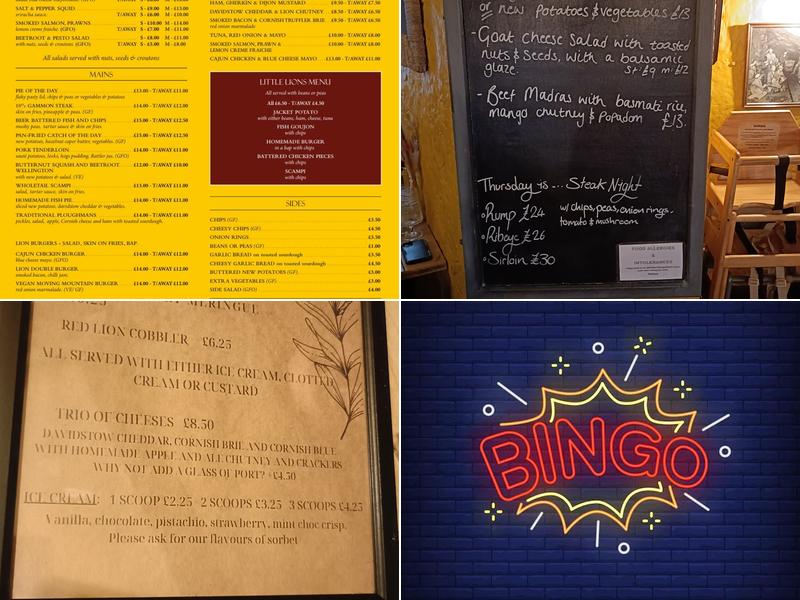 SALT & PEPPER SQUID S - £9.00 M - £13.00
sriracha sauce. T/AWAY S - £6.00 M - £10.00
SMOKED SALMON, PRAWNS S - £10.00 M - £14.00
lemon creme fraiche. (GFO) T/AWAY S - £7.00 M - £11.00
BEETROOT & PESTO SALAD S - £8.00 M - £11.00
with nuts, seeds & croutons (GFO) T/AWAY S - £5.00 M - £8.00
All salads served with nuts, seeds & croutons
MAINS
PIE OF THE DAY £13.00 - T/AWAY £11.00
flaky pasty lid, chips & peas or vegetables & potatoes
10oz GAMMON STEAK £14.00 - T/AWAY £12.00
skin on fries, pineapple & peas. (GF)
BEER BATTERED FISH AND CHIPS £15.00 - T/AWAY £12.50
mushy peas, tartar sauce & skin on fries.
PAN-FRIED CATCH OF THE DAY £15.00 - T/AWAY £12.50
new potatoes, hazelnut caper butter, vegetables. (GF)
PORK TENDERLOIN £14.00 - T/AWAY £11.00
sauté potatoes, leeks, hogs pudding, Rattler jus. (GFO)
BUTTERNUT SQUASH AND BEETROOT £12.00 - T/AWAY £10.00
WELLINGTON
with new potatoes & salad. (VE)
WHOLETAIL SCAMPI £13.00 - T/AWAY £11.00
salad, tartar sauce, skin on fries.
HOMEMADE FISH PIE £14.00 - T/AWAY £11.00
sliced new potatoes, davidstow cheddar & vegetables.
TRADITIONAL PLOUGHMANS £14.00 - T/AWAY £11.00
pickles, salad, apple, Cornish cheese and ham with toasted sourdough.
LION BURGERS - SALAD, SKIN ON FRIES, BAP.
CAJUN CHICKEN BURGER £14.00 - T/AWAY £12.00
blue cheese mayo. (GFO)
LION DOUBLE BURGER £14.00 - T/AWAY £12.00
smoked bacon, chilli jam.
VEGAN MOVING MOUNTAIN BURGER £14.00 - T/AWAY £12.00
red onion marmalade. (VE/ GF)
HAM, GHERKIN & DIJON MUSTARD £9.50 - T/AWAY £7.50
DAVIDSTOW CHEDDAR & LION CHUTNEY £8.50 - T/AWAY £6.50
SMOKED BACON & CORNISH TRUFFLER BRIE £8.50 - T/AWAY £6.50
red onion marmalade
TUNA, RED ONION & MAYO £10.00 - T/AWAY £8.00
SMOKED SALMON, PRAWN & £10.00 - T/AWAY £8.00
LEMON CREME FRAICHE
CAJUN CHICKEN & BLUE CHEESE MAYO £13.00 - T/AWAY £11.00
LITTLE LIONS MENU
All served with beans or peas
All £6.50 - T/AWAY £4.50
JACKET POTATO
with either beans, ham, cheese, tuna
FISH GOUJON
with chips
HOMEMADE BURGER
in a bap with chips
BATTERED CHICKEN PIECES
with chips
SCAMPI
with chips
SIDES
CHIPS (GF) £3.50
CHEESY CHIPS (GF) £4.50
ONION RINGS £3.50
BEANS OR PEAS (GF) £1.00
GARLIC BREAD on toasted sourdough £3.50
CHEESY GARLIC BREAD on toasted sourdough £4.50
BUTTERED NEW POTATOES (GF) £3.00
EXTRA VEGETABLES (GF) £3.00
SIDE SALAD (GFO) £4.00
or new potatoes & vegetables £13
- Goat cheese Salad with toasted
nuts & seeds, with a balsamic
glaze. St: £9 m: £12
- Beef Madras with basmati rice,
mango chutney & popadom £13.
Thursday is... Steak Night
• Rump £24 w/ chips, peas, onion rings,
tomato & mushroom
• Ribeye £26
• Sirloin £30
FOOD ALLERGIES
&
INTOLERANCES
MERINGUE
RED LION COBBLER £6.25
ALL SERVED WITH EITHER ICE CREAM, CLOTTED
CREAM OR CUSTARD
TRIO OF CHEESES £8.50
DAVIDSTOW CHEDDAR, CORNISH BRIE AND CORNISH BLUE
WITH HOMEMADE APPLE AND ALE CHUTNEY AND CRACKERS
WHY NOT ADD A GLASS OF PORT? +£4.50
ICE CREAM: 1 SCOOP £2.25 2 SCOOPS £3.25 3 SCOOPS £4.25
Vanilla, chocolate, pistachio, strawberry, mint choc crisp.
Please ask for our flavours of sorbet
BINGO